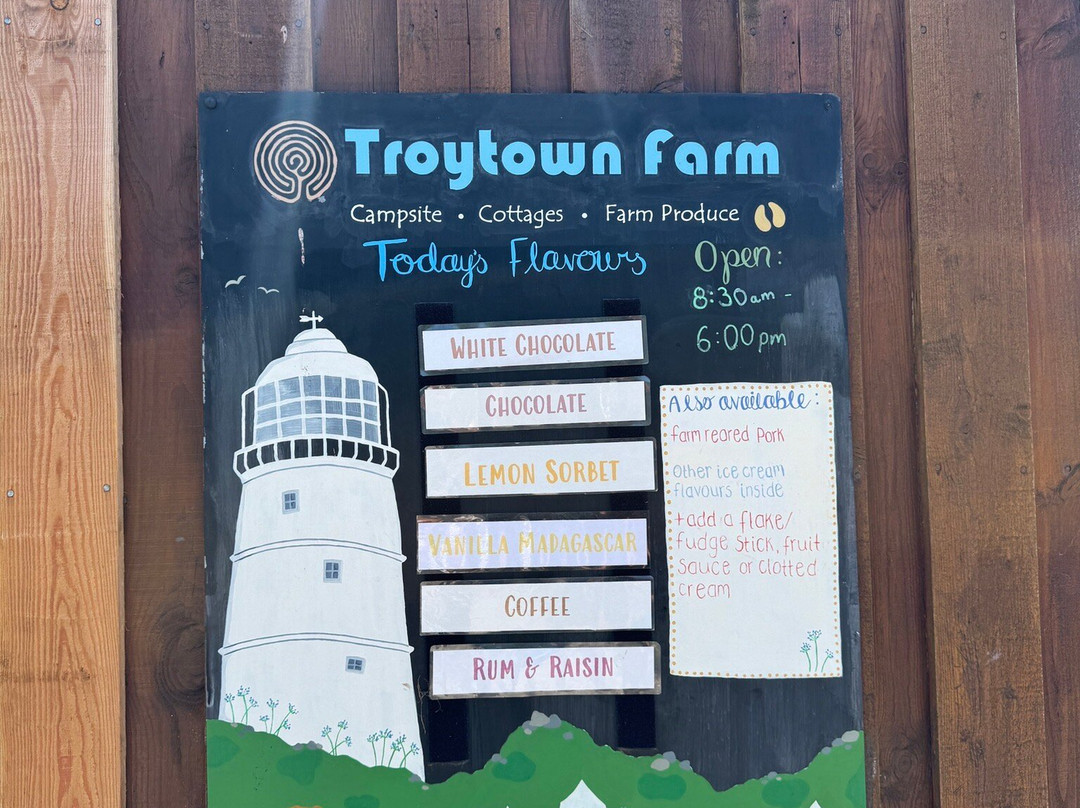 Troytown Farm
Campsite • Cottages • Farm Produce
Today's Flavours
Open:
8:30am -
6:00pm
WHITE CHOCOLATE
CHOCOLATE
LEMON SORBET
VANIELA MADAGASCAR
COFFEE
RUM & RAISIN
Also available:
farm reared Pork
Other ice cream
flavours inside
+add a flake/
fudge stick, fruit
sauce or clotted
cream